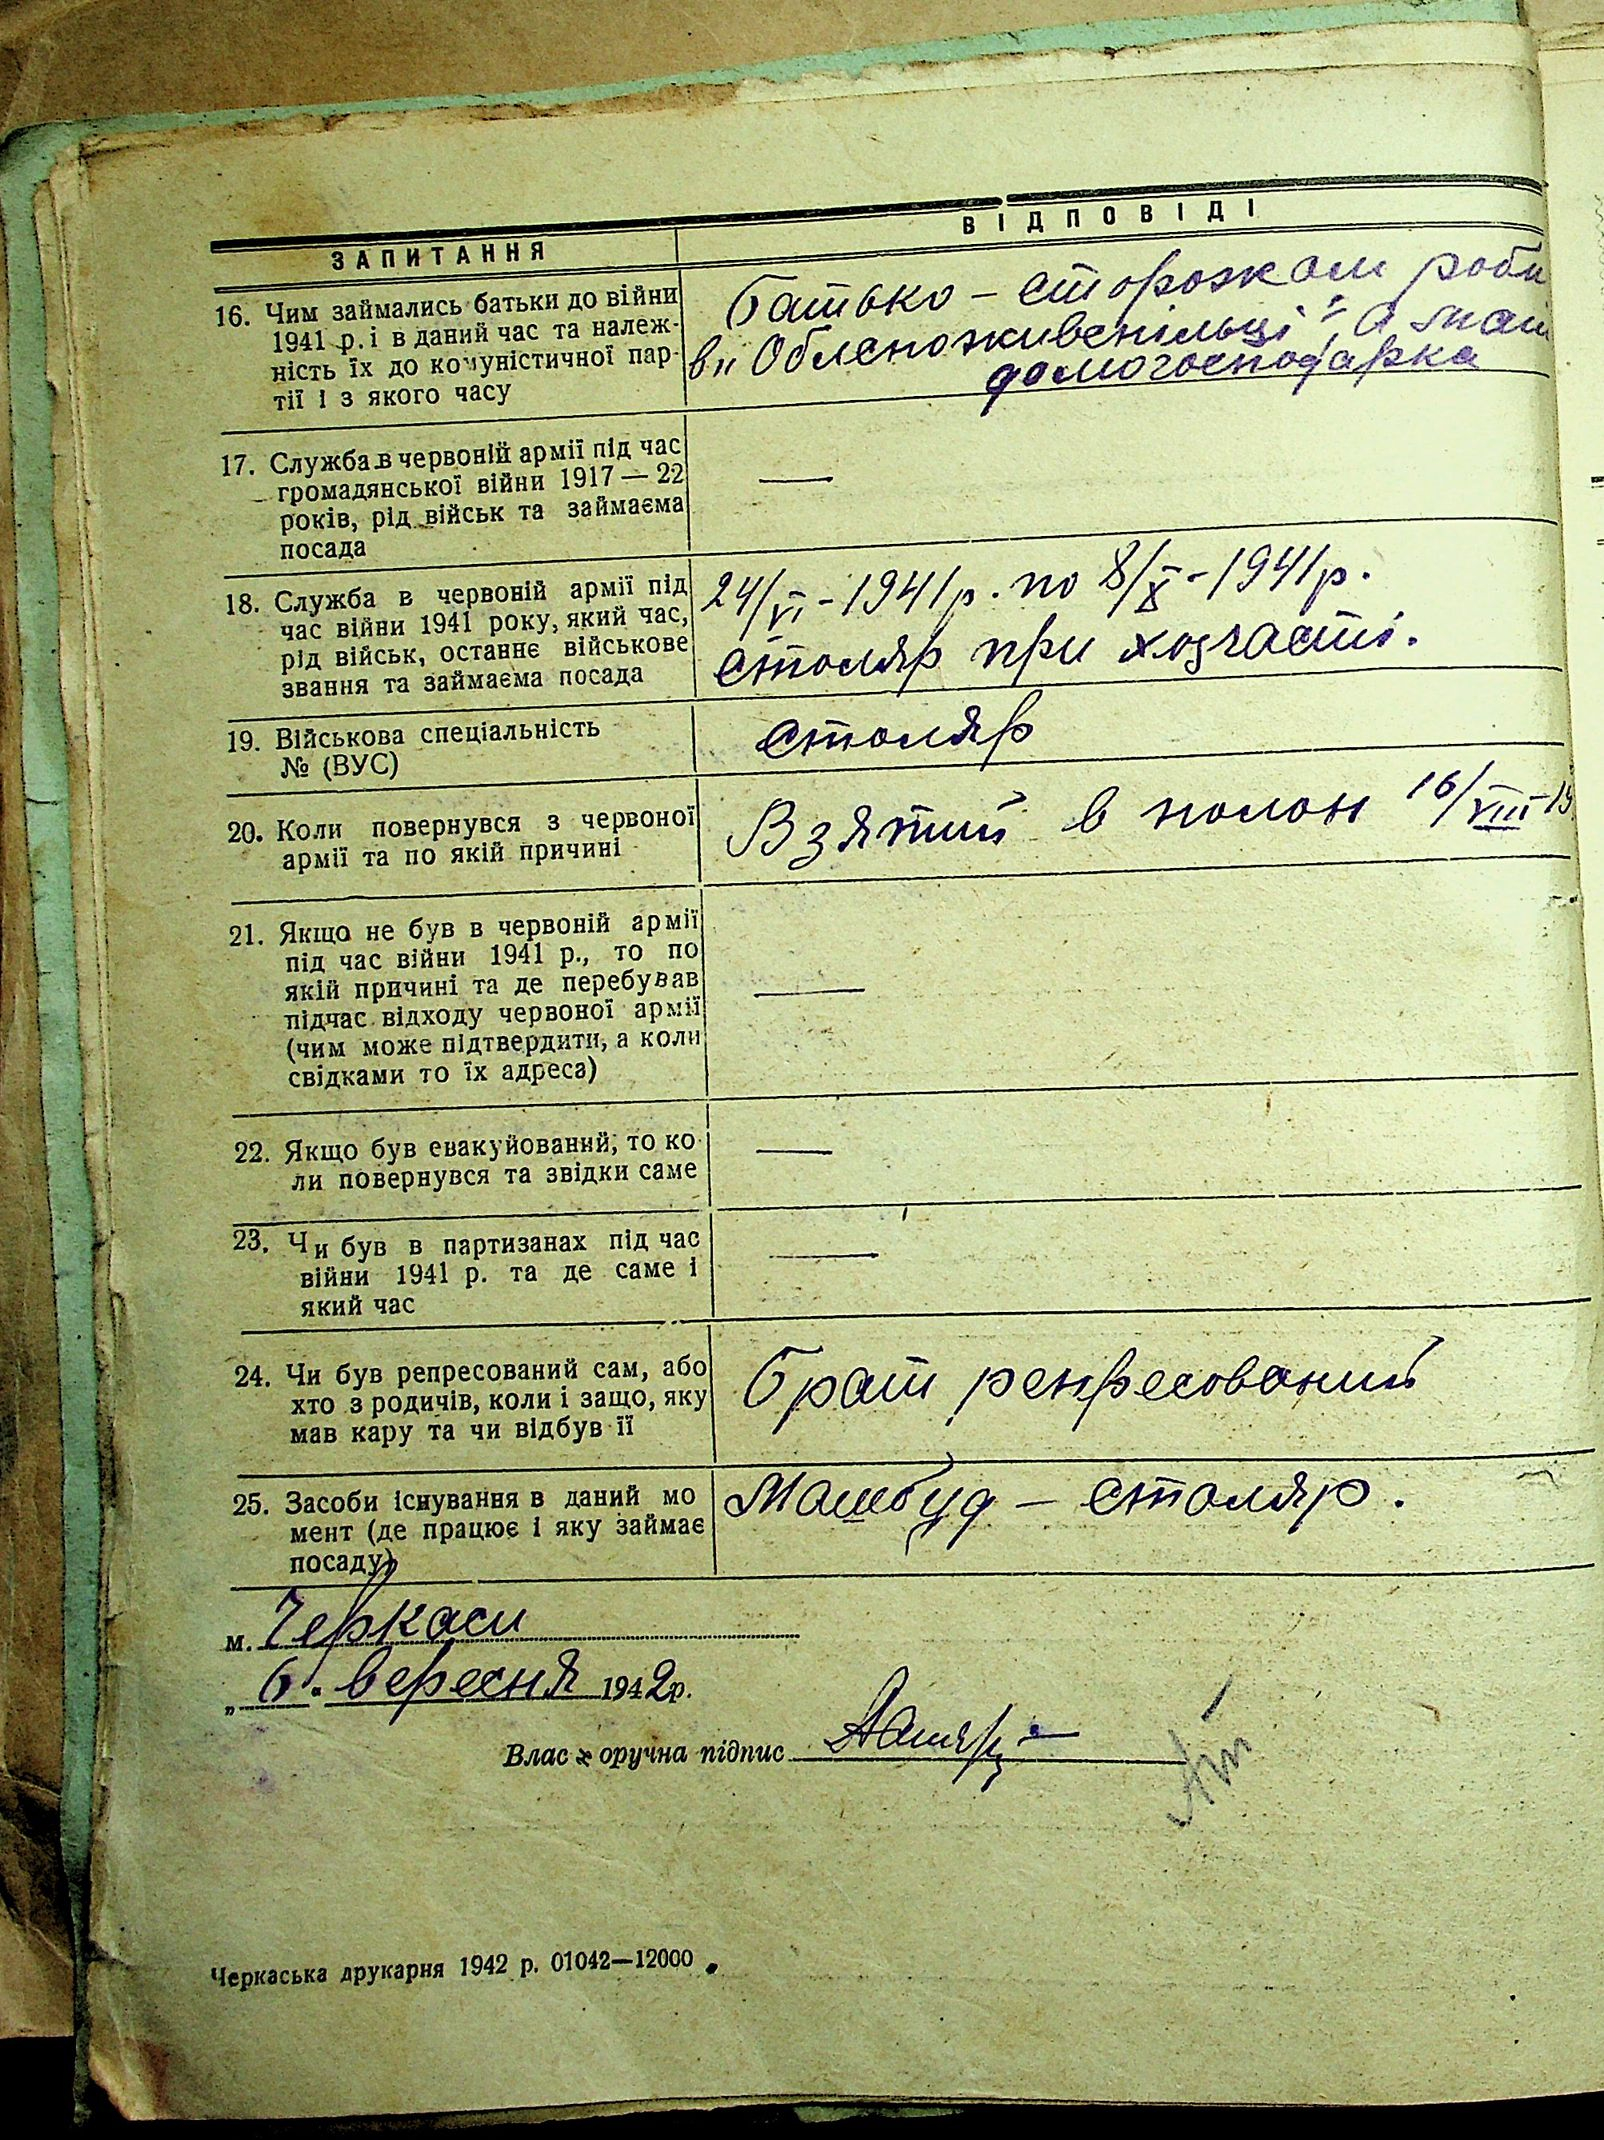 ЗАПИТАННЯ
ВІДПОВІДІ
16. Чим займались батьки до війни
1941 р. і в даний час та належ-
ність їх до комуністичної пар-
тії і з якого часу
Батько - сторожом роби
в „Облспоживспільці“, а мати
домогосподарка
17. Служба в червоній армії під час
громадянської війни 1917 — 22
років, рід військ та займаєма
посада
—
18. Служба в червоній армії під
час війни 1941 року, який час,
рід військ, останнє військове
звання та займаєма посада
24/VI - 1941 р. по 8/X - 1941 р.
столяр при хозчасті.
19. Військова спеціальність
№ (ВУС)
столяр
20. Коли повернувся з червоної
армії та по якій причині
Взятий в полон 16/VIII-19
21. Якщо не був в червоній армії
під час війни 1941 р., то по
якій причині та де перебував
підчас відходу червоної армії
(чим може підтвердити, а коли
свідками то їх адреса)
—
22. Якщо був евакуйований, то ко-
ли повернувся та звідки саме
—
23. Чи був в партизанах під час
війни 1941 р. та де саме і
який час
—
24. Чи був репресований сам, або
хто з родичів, коли і защо, яку
мав кару та чи відбув її
брат репресований
25. Засоби існування в даний мо
мент (де працює і яку займає
посаду)
Машбуд - столяр.
м. Черкаси
„6“ вересня 1942 р.
Власноручна підпис
Черкаська друкарня 1942 р. 01042—12000